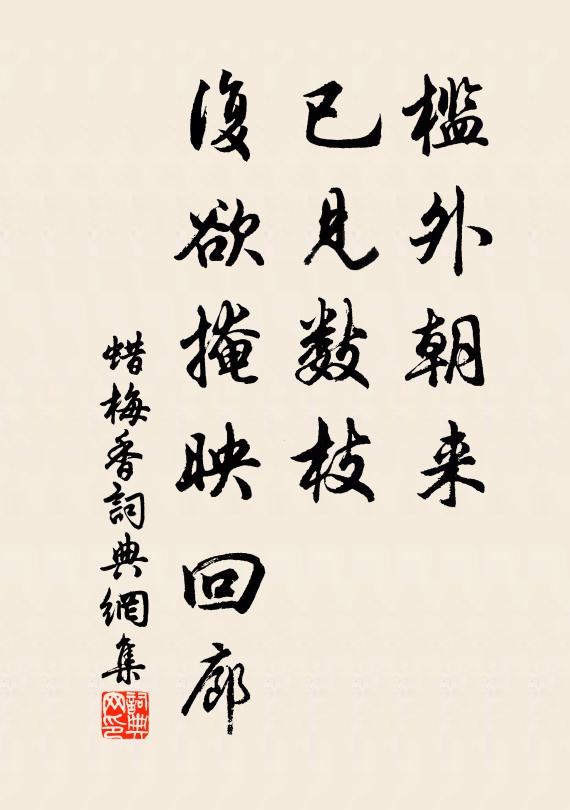 檻外朝来
已見數枝
復欲掩映回廊
蜡梅香詞典網集
詞典
网印